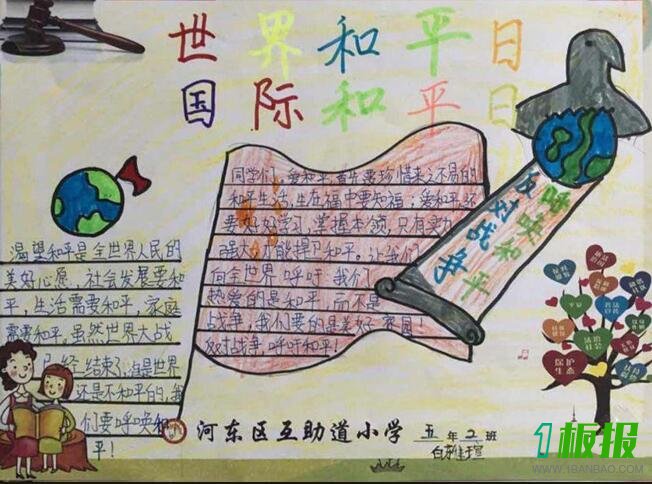 世界和平日
国际和平日
同学们，爱和平，首先要珍惜来之不易的
和平生活，生在福中要知福；爱和平，还
要好好学习，掌握本领，只有实力
强大，才能捍卫和平。让我们
向全世界呼吁：我们
热爱的是和平，而不是
战争，我们要的是美好家园！
反对战争，呼吁和平！
呼唤和平
反对战争
渴望和平是全世界人民的
美好心愿，社会发展要和
平，生活需要和平，家庭
需要和平。虽然世界大战
已经结束了，但是世界
还是不和平的，我
们要呼唤和
平！
保护生态
河东区互助道小学 五年2班
1板报
WWW.1BANBAO.COM